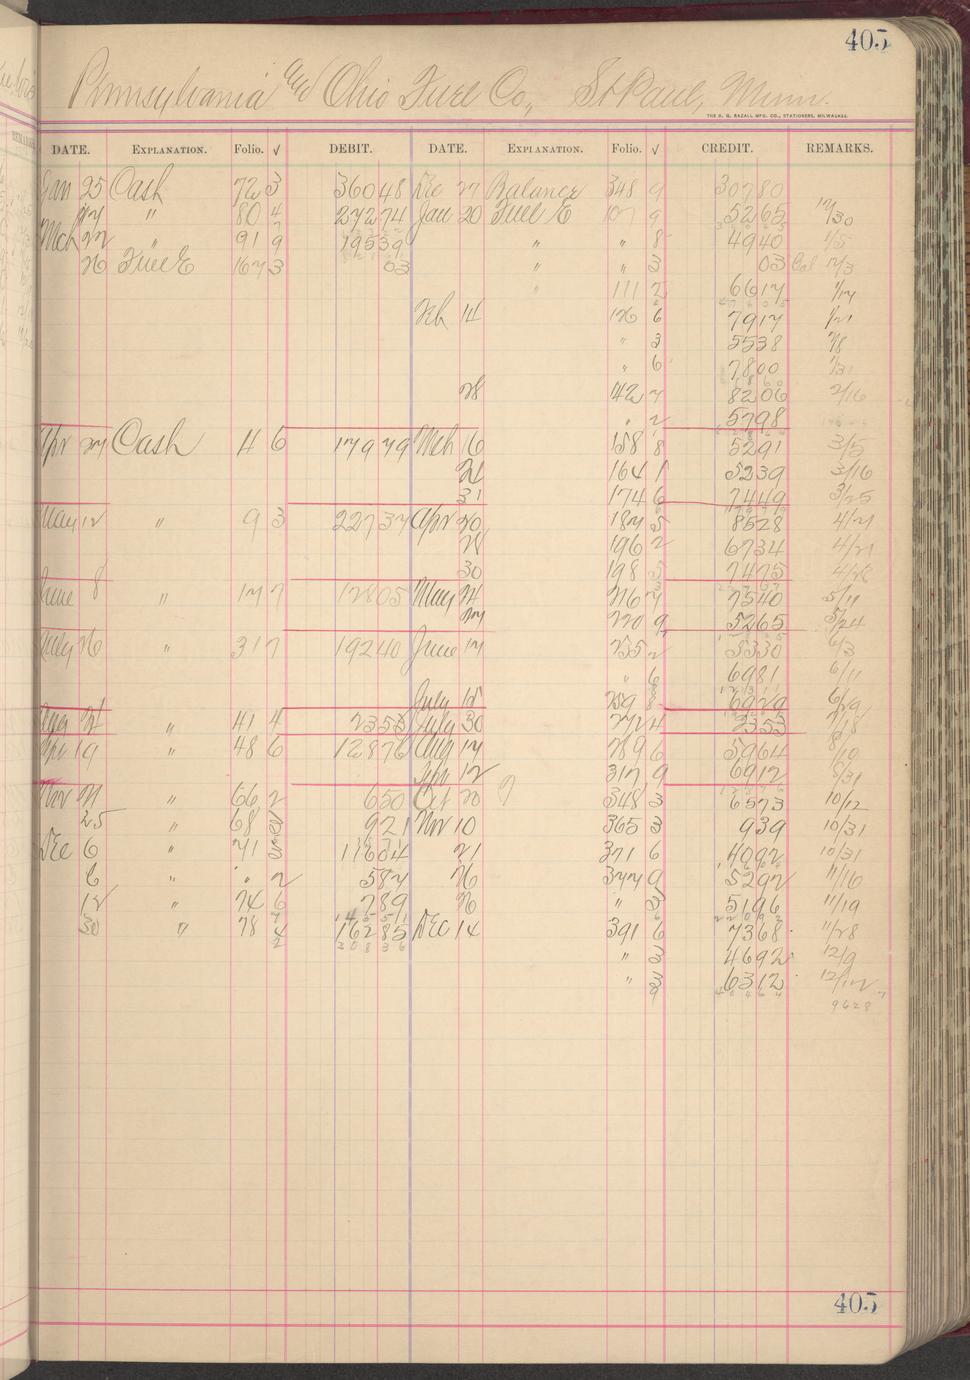 405
Pennsylvania and Ohio Fuel Co., St Paul, Minn.
THE H. G. RAZALL MFG. CO., STATIONERS, MILWAUKEE.
DATE. EXPLANATION. Folio. √ DEBIT. DATE. EXPLANATION. Folio. √ CREDIT. REMARKS.
Jan 25 Cash 72 3 360 48 Dec 27 Balance 348 9 307 80
" 80 4 272 74 Jan 20 Fuel E 107 9 52 65 12/30
Mch 22 " 91 9 195 39 " " 8 49 40 1/5
26 Fuel E 167 3 03 " " 3 03 Cal 1/3
" 111 2 66 17 1/14
Feb 14 126 6 79 17 1/21
" 3 55 38 1/8
" 6 78 00 1/31
28 142 7 82 06 2/16
" 2 57 98
Apr 27 Cash 4 6 179 79 Mch 16 158 8 52 91 3/5
21 164 1 52 39 3/16
31 174 6 74 49 3/25
May 12 " 9 3 227 37 Apr 20 187 5 85 28 4/7
28 196 2 67 34 4/21
30 198 5 74 75 4/28
June 8 " 17 7 128 05 May 21 216 7 75 40 5/11
27 220 9 52 65 5/24
July 26 " 31 7 192 40 June 17 235 2 53 30 6/3
" 6 69 81 6/11
July 15 259 8 69 29 6/29
Aug 21 " 41 4 23 53 July 30 272 4 23 53 7/18
Sept 19 " 48 6 128 76 Aug 17 289 6 59 64 8/10
Sept 12 317 9 69 12 8/31
Nov 21 " 66 2 6 50 Oct 20 348 3 65 73 10/12
25 " 68 3 9 21 Nov 10 365 3 9 39 10/31
Dec 6 " 71 3 116 04 21 371 6 40 92 10/31
6 " " 2 5 87 26 377 9 52 92 11/10
12 " 74 6 7 89 26 " 3 51 96 11/19
30 " 78 4 162 85 Dec 14 391 6 73 68 11/28
" 3 46 92 12/9
" 3 63 12 12/12
96 28
405